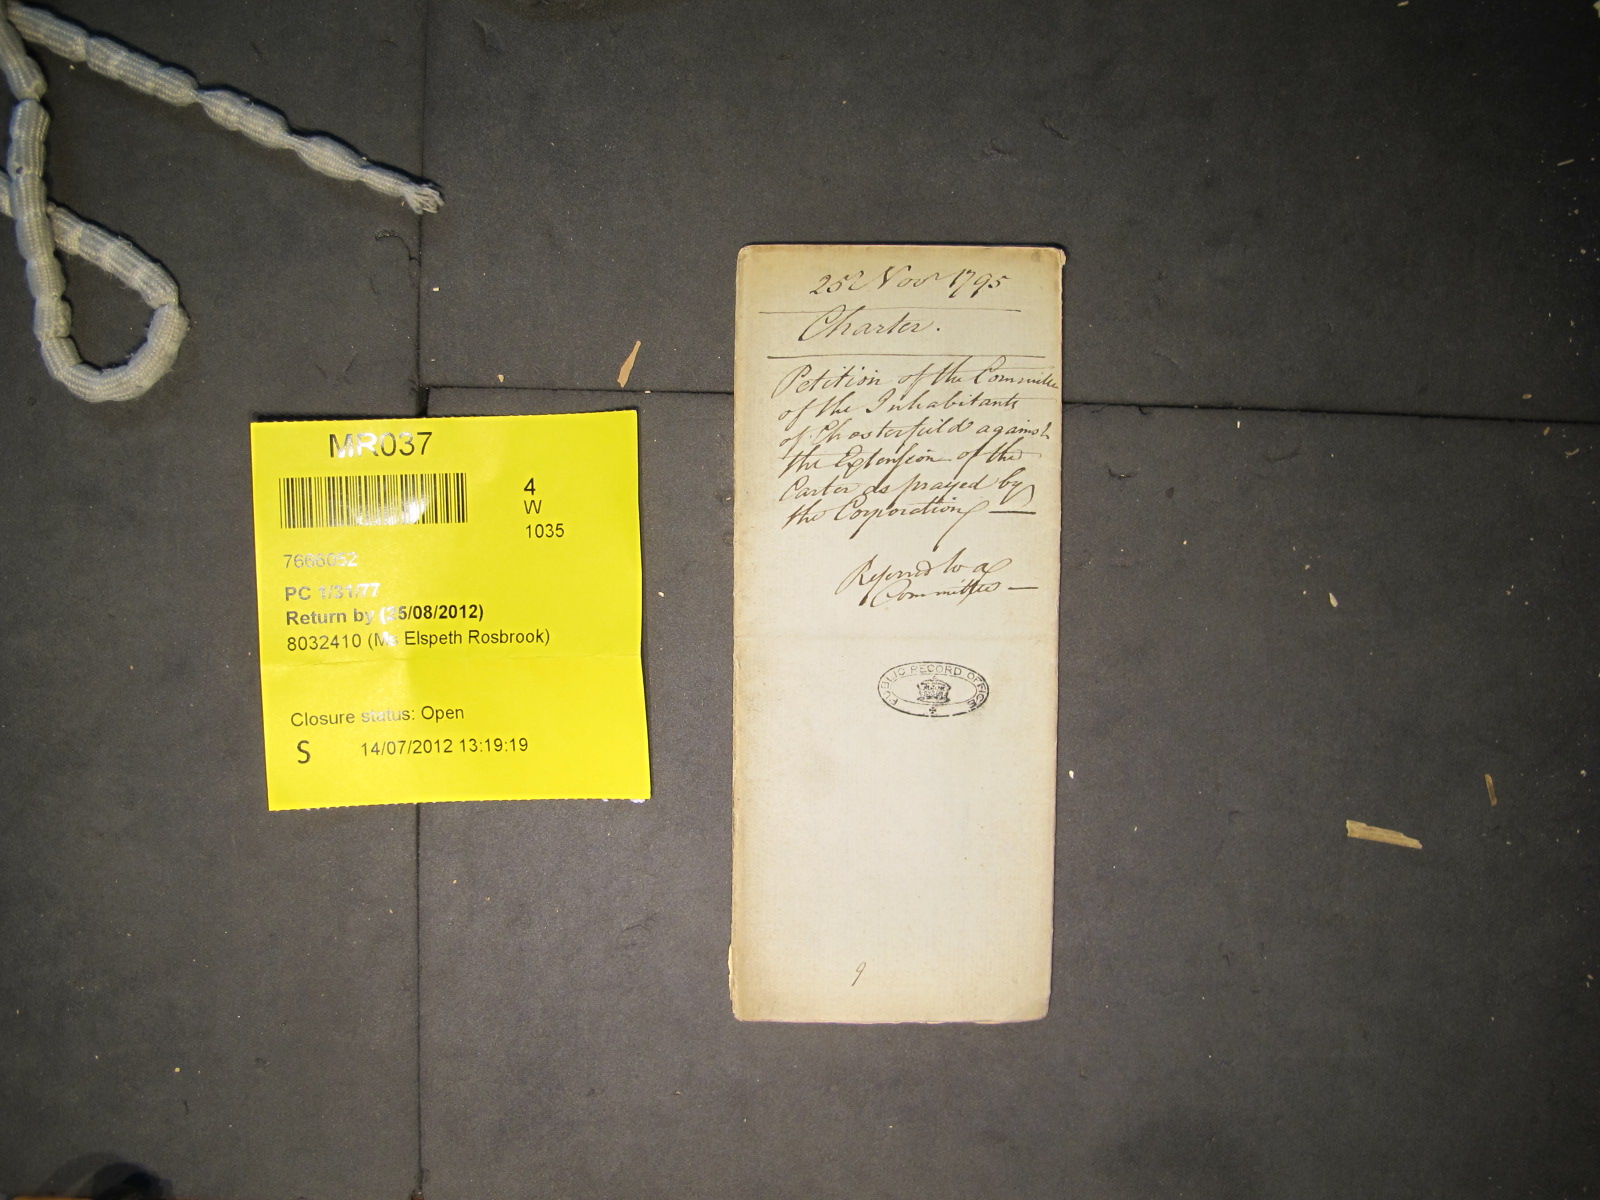 MR037
4
W
1035
7666052
PC 1/31/77
Return by (25/08/2012)
8032410 (Ms Elspeth Rosbrook)
Closure status: Open
S 14/07/2012 13:19:19
25 Novr 1795
Charter.
Petition of the Committee
of the Inhabitants
of Chesterfield against
the Extension of the
Carter as prayed by
the Corporation
Referred to a
Committee
PUBLIC RECORD OFFICE
9